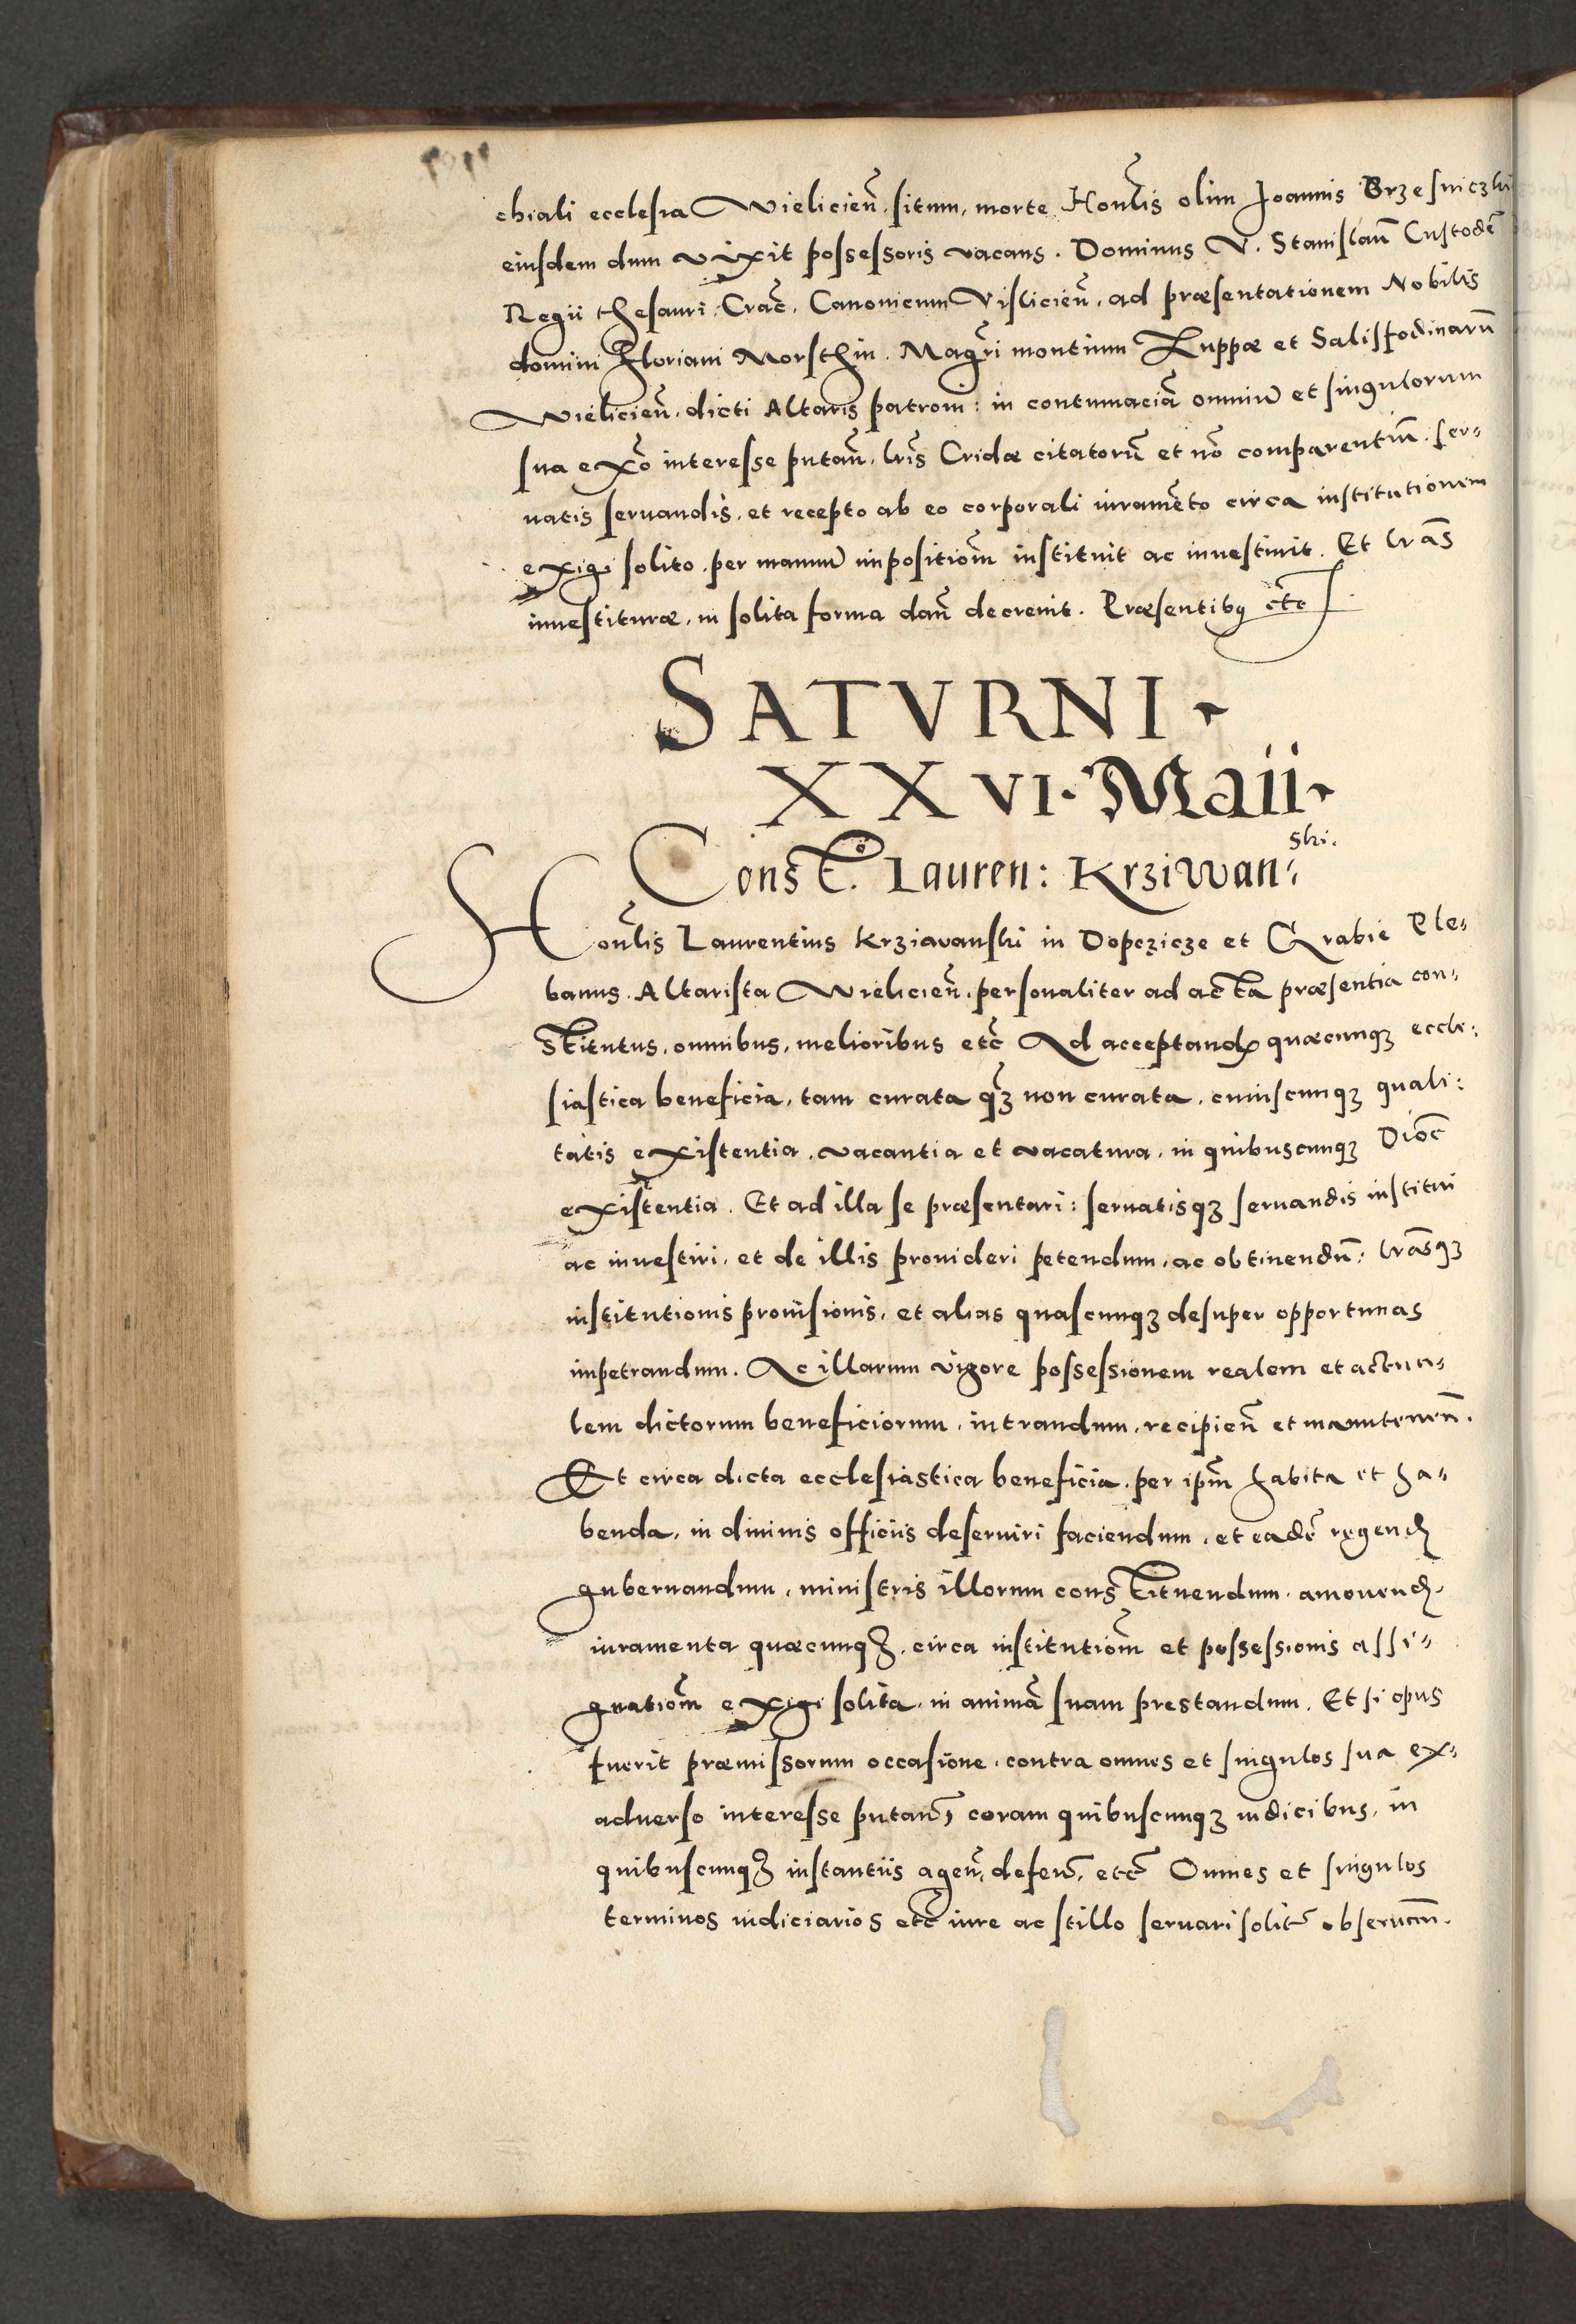 chiali ecclesia Wielicien̄. situm, morte Hon̄lis olim Joannis Brzesniczki
eiusdem dum vixit possessoris vacans. Dominus V. Stanislaū Custodē
Regii thesauri, Crac̄. Canonicum Vislicien̄. ad præsentationem Nobilis
domini Floriani Morsthin. Magr̄i montium Zuppæ et Salisfodinarū
Wielicien̄. dicti Altaris patroni: in contumaciā omniū et singulorum
sua ex aōo interesse putan̄. lr̄is Cridæ citatorū et nō comparentiū. ser-
uatis seruandis. et recepto ab eo corporali iuramēto circa institutionem
exigi solito. per manuū impositiōm instituit ac inuestiuit. Et lr̄as
inuestituræ, in solita forma dan̄ decreuit. Præsentibꝯ etc̄
SATVRNI.
XXVI. Maii.
Constō. Lauren: Krziwan=
ski.
Hon̄lis Laurentius Krziavanski in Dopczicze et Grabie Ple-
banus. Altarista Wielicien̄. personaliter ad acta præsentia con-
stitutus. omnibus, melioribus etc̄ Ad acceptandꝭ quæcunqꝫ eccle-
siastica beneficia, tam curata qꝫ̄ non curata, cuiuscunqꝫ quali:
tatis existentia, vacantia et vacatura, in quibuscunqꝫ Dioc̄
existentia. Et ad illa se præsentari: seruatisqꝫ seruandis institui
ac inuestiri, et de illis prouideri petendum, ac obtinendū: lr̄asqꝫ
institutionis prouisionis, et alias quascunqꝫ desuper opportunas
impetrandum. Ac illarum vigore possessionem realem et actua-
lem dictorum beneficiorum, intrandum, recipien̄ et manutenen̄.
Et circa dicta ecclesiastica beneficia, per ipm̄ habita et ha-
benda, in diuinis officiis deseruiri faciendum, et eadē regendꝭ
gubernandum, ministris illorum constituendum, amouendꝭ.
iuramenta quæcunqꝫ, circa institutiōm et possessionis assi-
gnatiōm exigi solita, in animā suam prestandum. Et si opus
fuerit præmissorum occasione, contra omnes et singulos sua ex-
aduerso interesse putan̄, coram quibuscunqꝫ iudicibus, in
quibuscunqꝫ instantiis agen̄, defen̄, etc̄ Omnes et singulos
terminos iudiciarios etc̄ iure ac stillo seruari solit̄ obseruan̄.